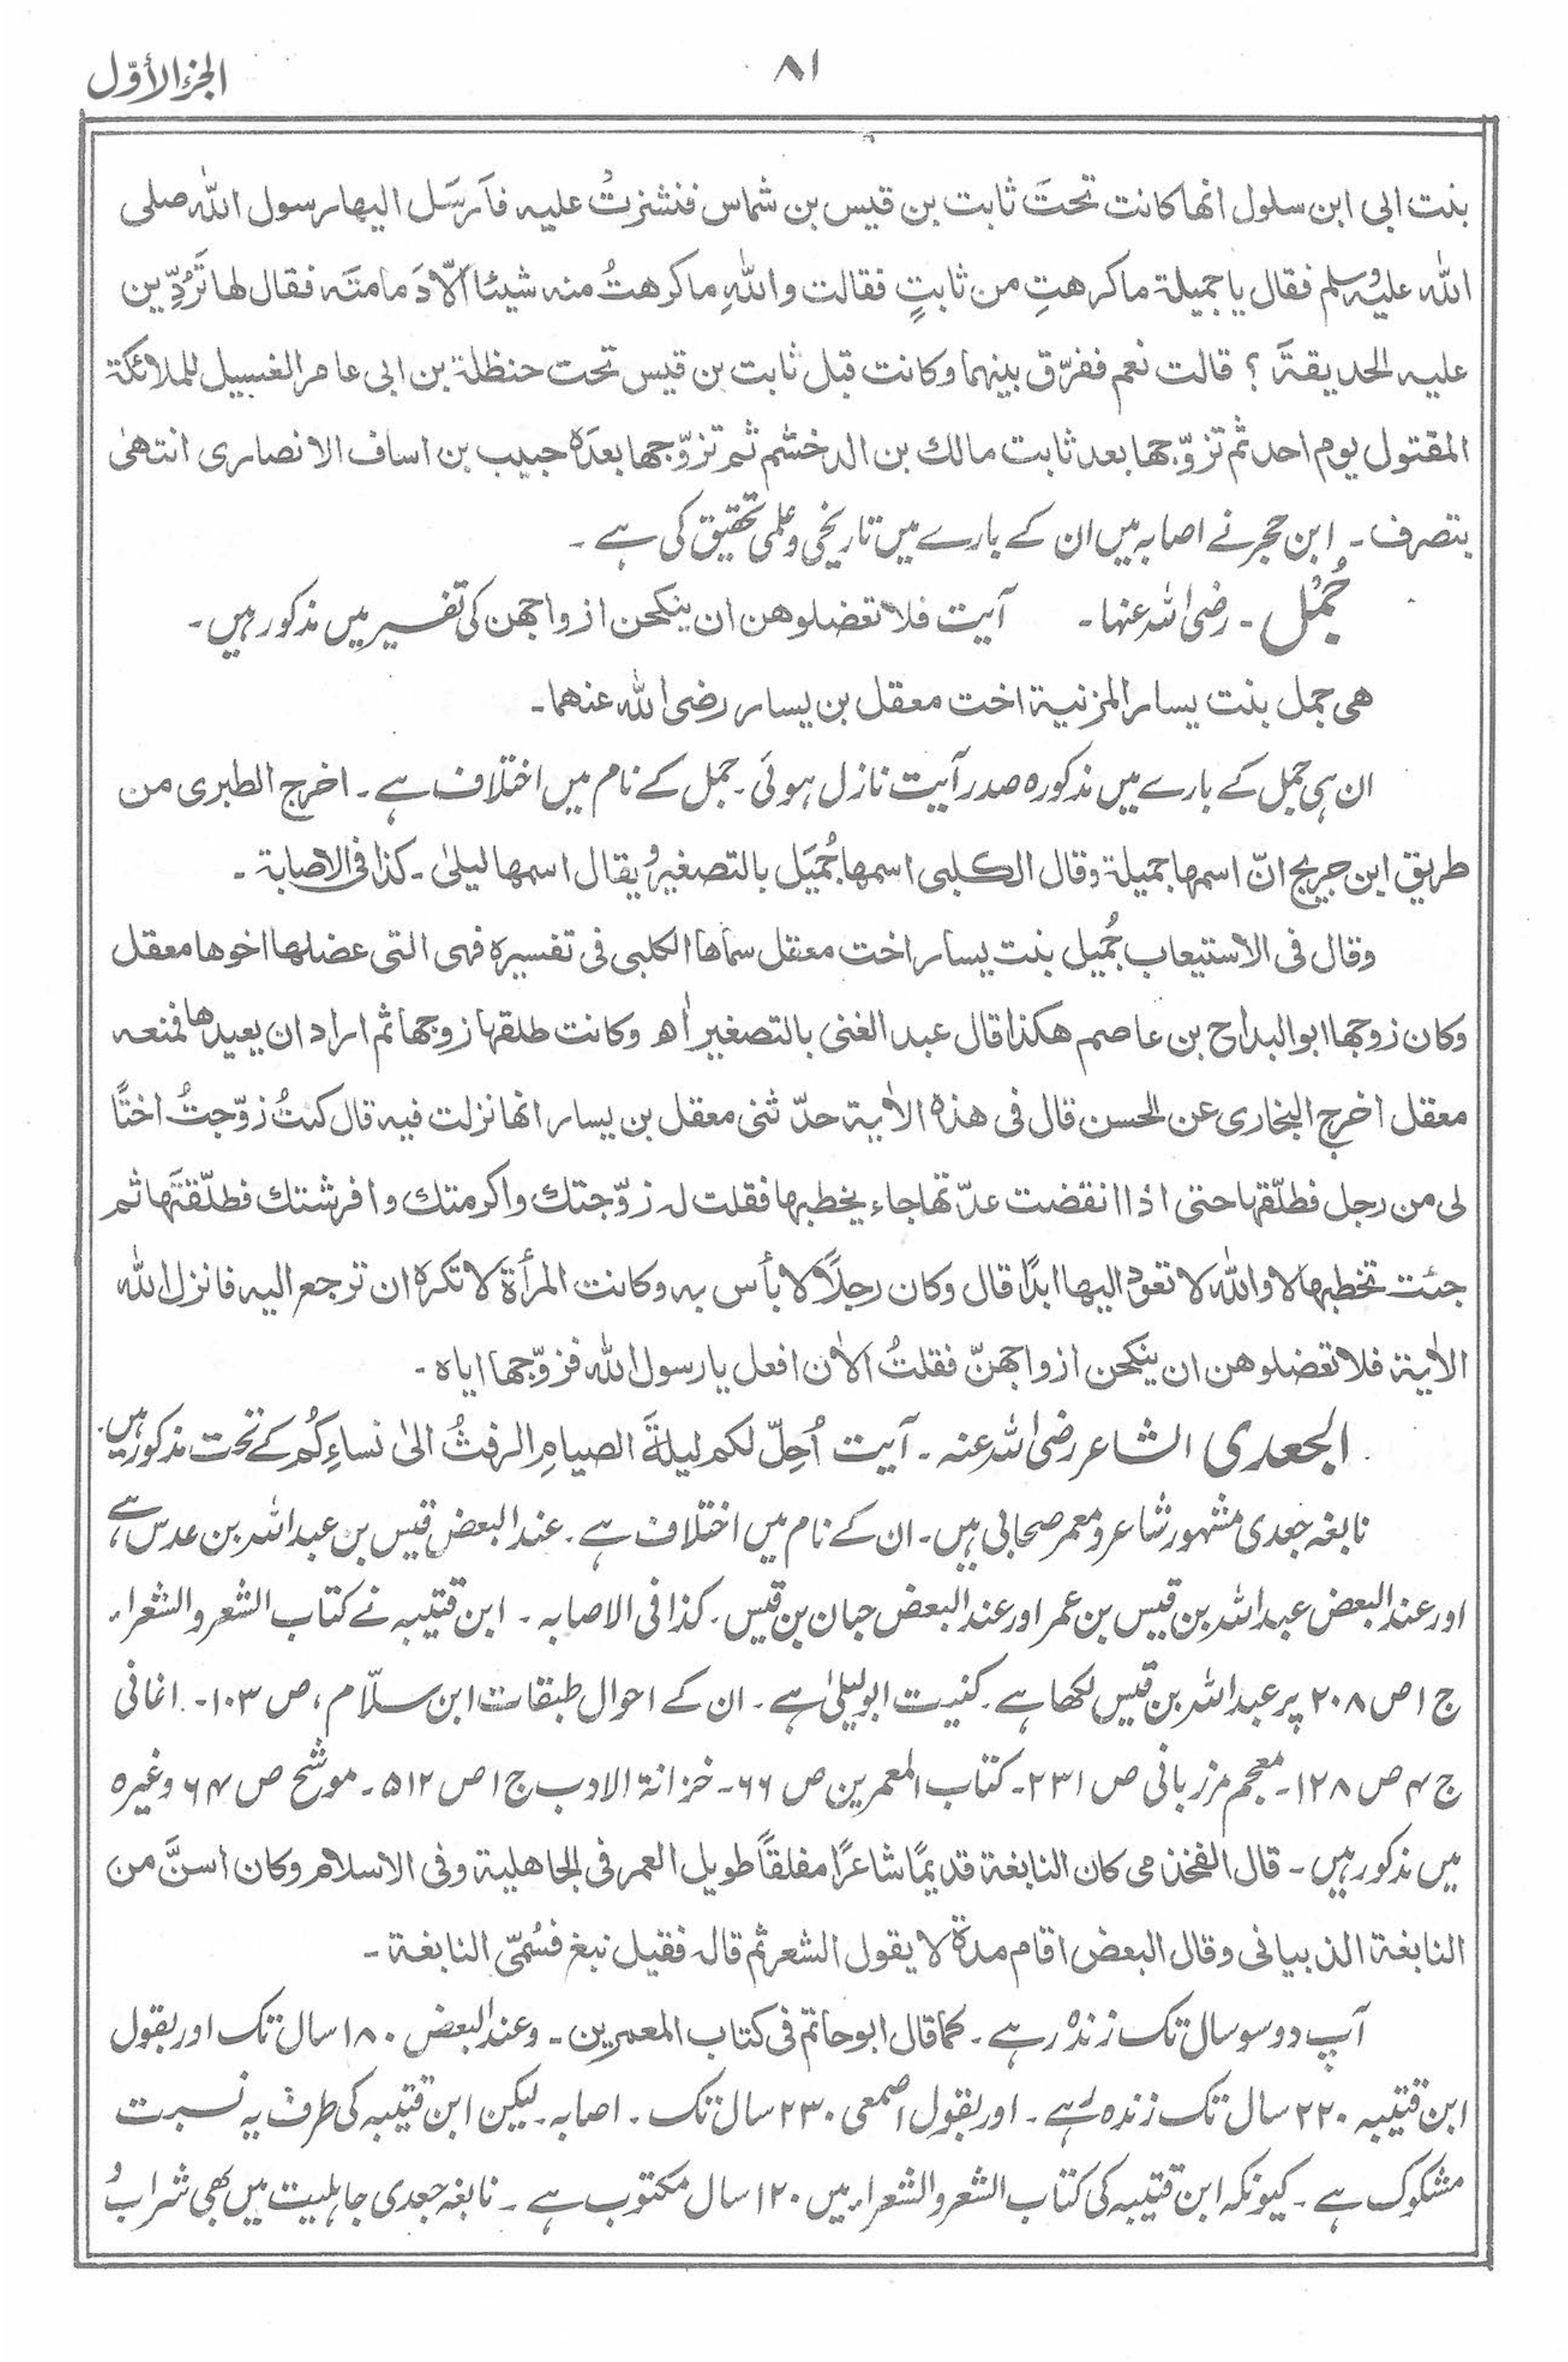 ٨١
الجزء الأوّل
بنت ابی ابن سلول انھا کانت تحتَ ثابت بن قیس بن شماس فنشزتُ علیہ فاَرسَل الیھا رسول اللّٰہ صلی
اللّٰہ علیہ وسلم فقال یا جمیلۃ ما کرھتِ من ثابتٍ فقالت واللّٰہِ ما کرھتُ منہ شیئا اِلّا دَمامتَہ فقال لھا تَرُدِّین
علیہ الحدیقۃَ ؟ قالت نعم ففرّق بینھما وکانت قبل ثابت بن قیس تحت حنظلۃ بن ابی عامر الغسیل للملائکۃ
المقتول یوم احد ثم تزوّجھا بعد ثابت مالك بن الدخشم ثم تزوّجھا بعدَہ حبیب بن اساف الانصاری انتھیٰ
بتصرف ۔ ابن حجر نے اصابہ میں ان کے بارے میں تاریخی و علمی تحقیق کی ہے ۔
جُمْل ۔ رضی اللہ عنہا ۔ آیت فلا تعضلوھن ان ینکحن ازواجھن کی تفسیر میں مذکور ہیں ۔
ھی جمل بنت یسار المزنیۃ اخت معقل بن یسار رضی اللّٰہ عنھما ۔
ان ہی جمل کے بارے میں مذکورہ صدر آیت نازل ہوئی ۔ جمل کے نام میں اختلاف ہے ۔ اخرج الطبری من
طریق ابن جریج انّ اسمھا جمیلۃ وقال الکلبی اسمھا جُمَیل بالتصغیر ویقال اسمھا لیلیٰ ۔ کذا فی الاصابۃ ۔
وقال فی الاستیعاب جُمیل بنت یسار اخت معقل سماھا الکلبی فی تفسیرہ فھی التی عضلھا اخوھا معقل
وکان زوجھا ابو البداح بن عاصم ھکذا قال عبد الغنی بالتصغیر اھ وکانت طلقھا زوجھا ثم اراد ان یعیدھا فمنعہ
معقل اخرج البخاری عن الحسن قال فی ھذہ الاٰیۃ حدّثنی معقل بن یسار انھا نزلت فیہ قال کنتُ زوّجتُ اختًا
لی من رجل فطلّقھا حتی اذا انقضت عدّتھا جاء یخطبھا فقلت لہ زوّجتك واکرمتك وافرشتك فطلّقتَھا ثم
جئت تخطبھا لا واللّٰہ لا تعود الیھا ابدًا قال وکان رجلًا لا بأس بہ وکانت المرأۃ لا تکرہ ان ترجع الیہ فانزل اللّٰہ
الاٰیۃ فلا تعضلوھن ان ینکحن ازواجھنّ فقلتُ الاٰن افعل یا رسول اللّٰہ فزوّجھا ایاہ ۔
الجعدی الشاعر رضی اللہ عنہ ۔ آیت اُحِلّ لکم لیلۃَ الصیامِ الرفثُ الیٰ نساءِکُم کے تحت مذکور ہیں ۔
نابغہ جعدی مشہور شاعر و معمر صحابی ہیں ۔ ان کے نام میں اختلاف ہے ۔ عند البعض قیس بن عبداللہ بن عدس ہے
اور عند البعض عبداللہ بن قیس بن عمر اور عند البعض حبان بن قیس ۔ کذا فی الاصابہ ۔ ابن قتیبہ نے کتاب الشعر والشعراء
ج ۱ ص ۲۰۸ پر عبداللہ بن قیس لکھا ہے ۔ کنیت ابو لیلیٰ ہے ۔ ان کے احوال طبقات ابن سلّام ، ص ۱۰۳ ۔ اغانی
ج ۴ ص ۱۲۸ ۔ معجم مرزبانی ص ۲۳۱ ۔ کتاب المعمرین ص ۶۶ ۔ خزانۃ الادب ج ۱ ص ۵۱۲ ۔ موشح ص ۶۴ وغیرہ
میں مذکور ہیں ۔ قال القخذمی کان النابغۃ قدیمًا شاعرًا مفلقًا طویل العمر فی الجاھلیۃ وفی الاسلام وکان اسنَّ من
النابغۃ الذبیانی وقال البعض اقام مدۃ لا یقول الشعر ثم قالہ فقیل نبغ فسُمّی النابغۃ ۔
آپ دو سو سال تک زندہ رہے ۔ کما قال ابو حاتم فی کتاب المعمرین ۔ وعند البعض ۱۸۰ سال تک اور بقول
ابن قتیبہ ۲۲۰ سال تک زندہ رہے ۔ اور بقول اصمعی ۲۳۰ سال تک ۔ اصابہ ۔ لیکن ابن قتیبہ کی طرف یہ نسبت
مشکوک ہے ۔ کیونکہ ابن قتیبہ کی کتاب الشعر والشعراء میں ۱۲۰ سال مکتوب ہے ۔ نابغہ جعدی جاہلیت میں بھی شراب و